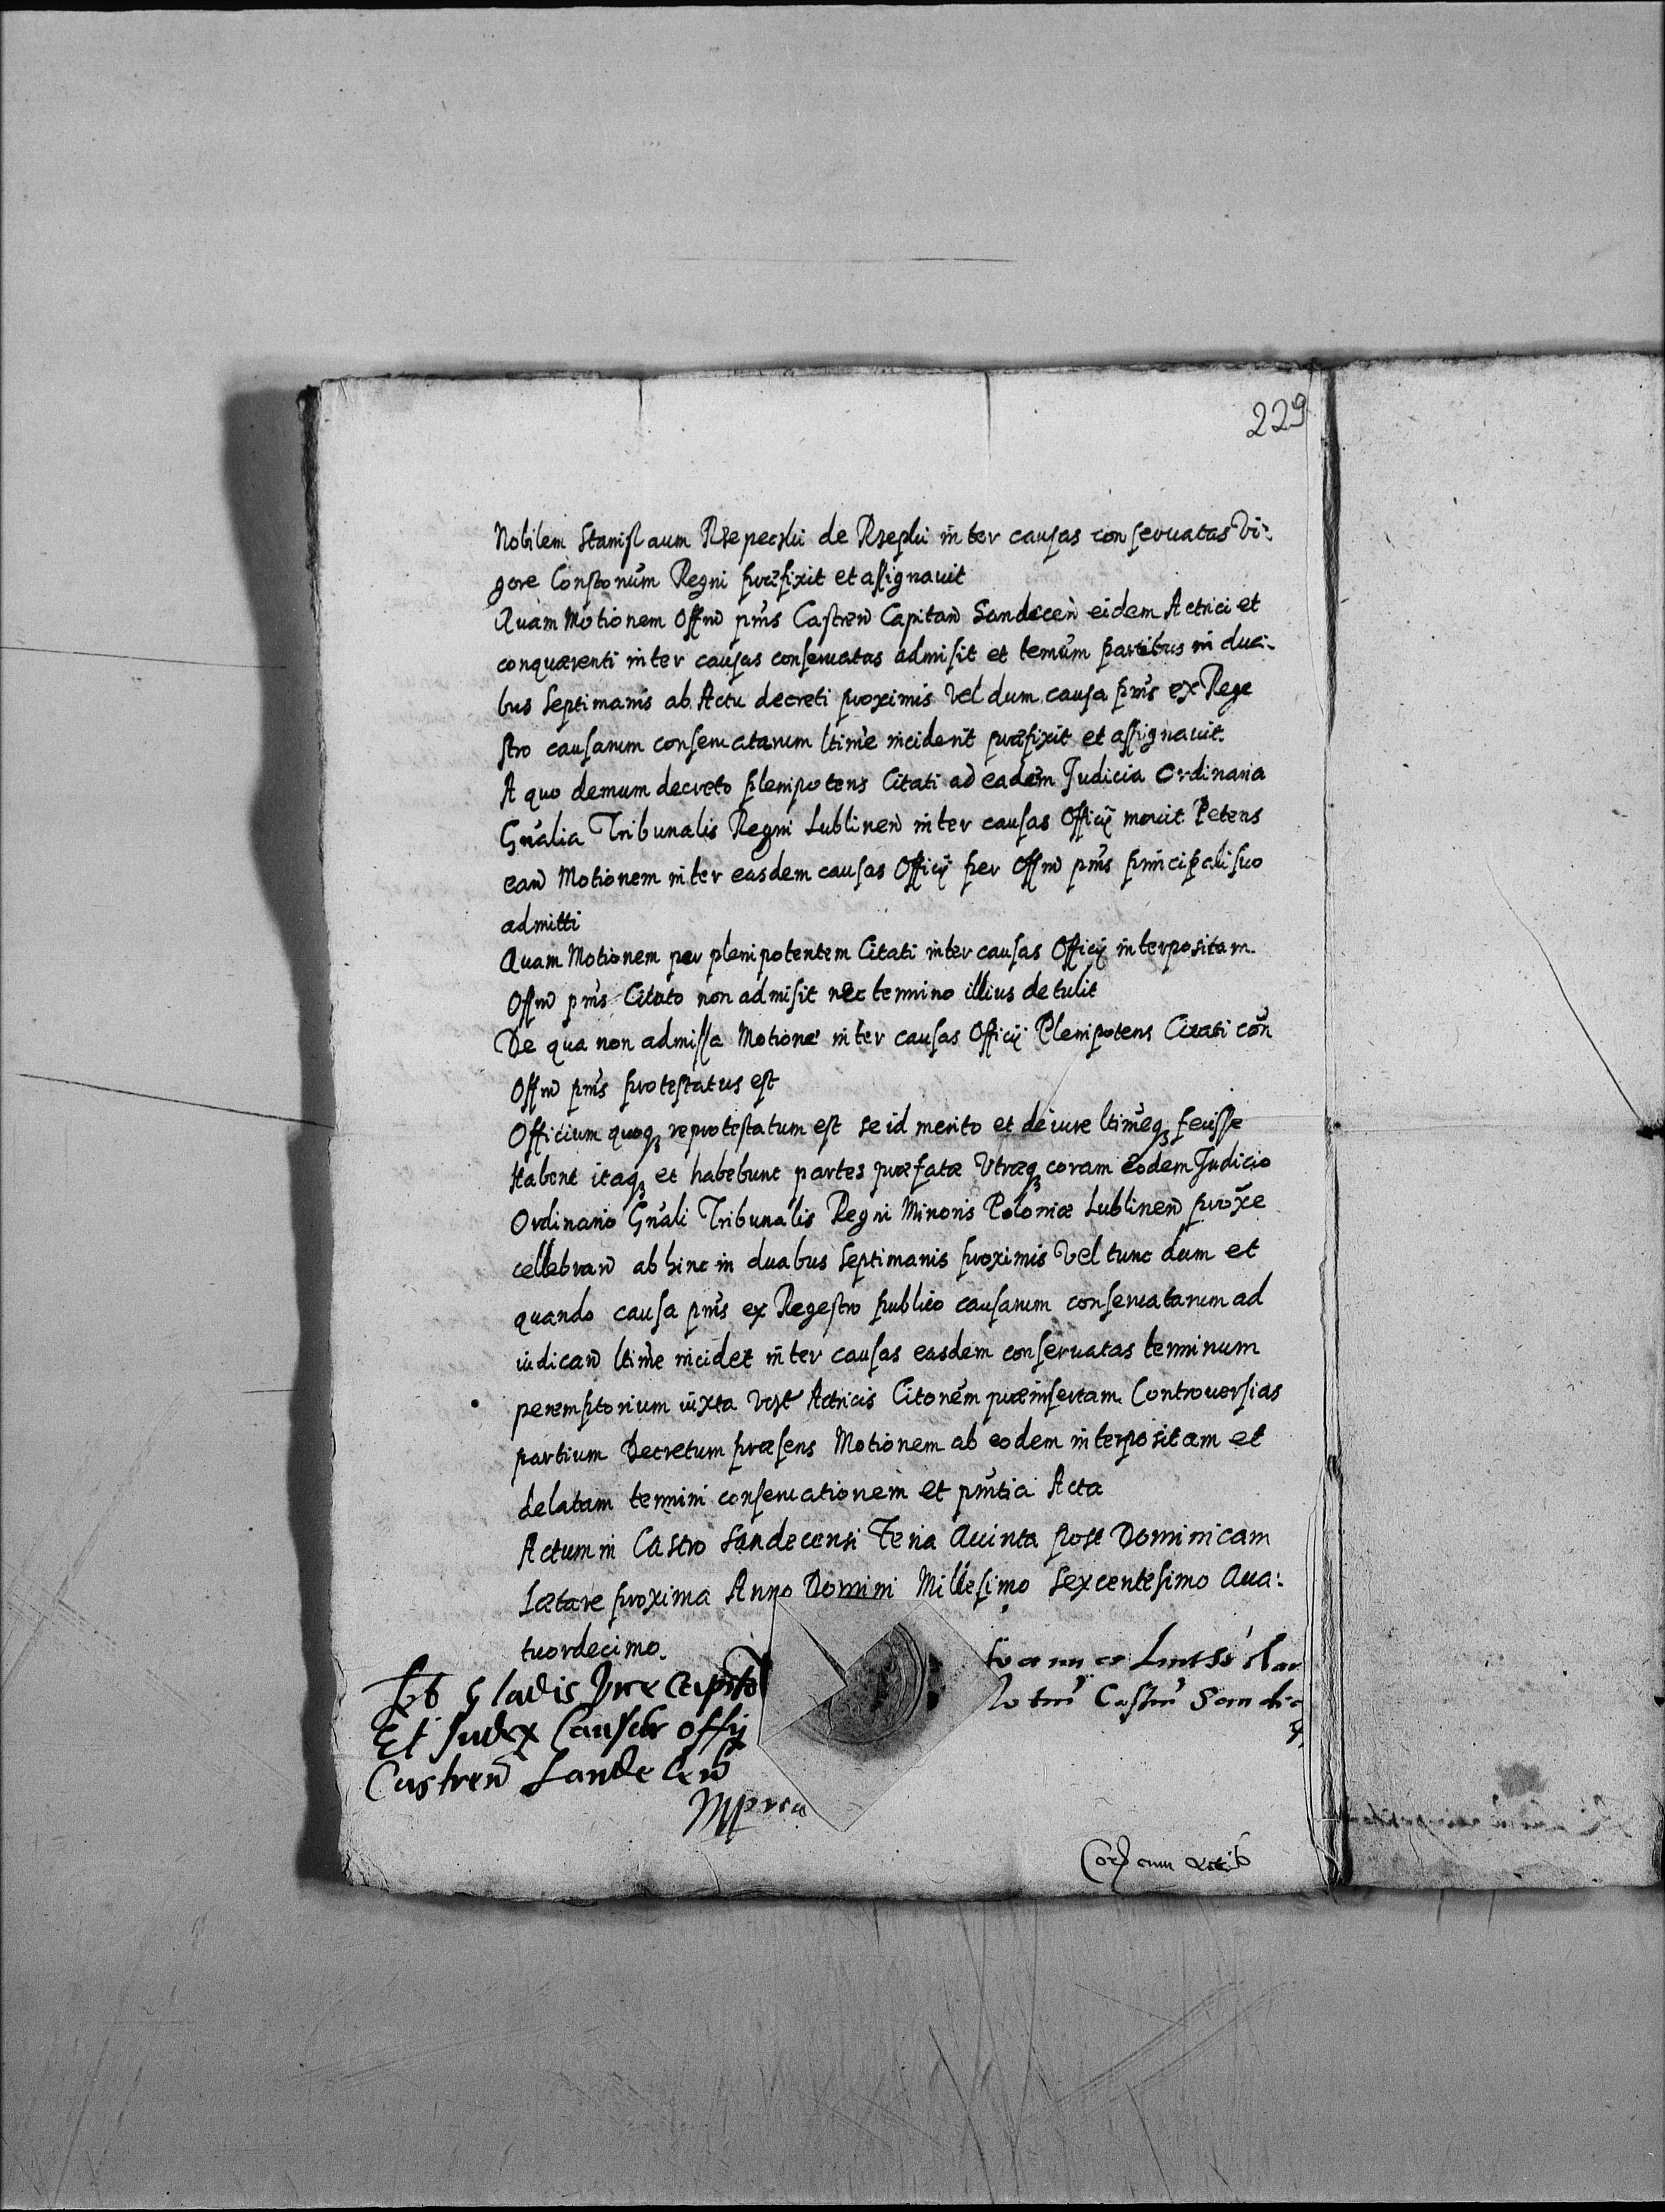 229
Nobilem Stanislaum Rzepeczki de Rzepki inter causas conseruatas Vi:
gore Constonum Regni præfixit et assignauit
Quam Motionem Offm pñs Castren Capitan Sandecen eidem Actrici et
conquærenti inter causas conseruatas admisit et temum partibus in dua:
bus Septimanis ab Actu decreti proximis Vel dum causa pñs ex Rege
stro causarum conseruatarum ltime inciderit præfixit et assignauit
A quo demum decreto plenipotens Citati ad eadem Judicia Ordinaria
Gnalia Tribunalis Regni Lublinen inter causas Officij mouit Petens
ean Motionem inter easdem causas Officij per Offm pñs principali suo
admitti
Quam Motionem per plenipotentem Citati inter causas Officij interpositam
Offm pñs Citato non admisit nec termino illius detulit
De qua non admissa Motione inter causas Officij Plenipotens Citati con
Offm pñs protestatus est
Officium quoq3 reprotestatum est se id merito et de iure ltimeq3 fecisse
Habent itaq3 et habebunt partes præfatæ Vtræq3 coram eodem Judicio
Ordinario Gnali Tribunalis Regni Minoris Poloniæ Lublinen proxe
cellebran ab hinc in duabus Septimanis proximis Vel tunc dum et
quando causa pñs ex Regestro publico causarum conseruatarum ad
iudican ltime incidet inter causas easdem conseruatas terminum
peremptorium iuxta Actricis Citonem præinsertam Controuersias
partium Decretum præsens Motionem ab eodem interpositam et
delatam termini conseruationem et pñtia Acta
Actum in Castro Sandecensi Feria Quinta post Dominicam
Lætare proxima Anno Domini Millesimo Sexcentesimo Qua:
tuordecimo.
Gladis Vice Capita
Et Judex Causar offij
Castren Sandecen
Mpria
Castrñ Sandec
Corr cum actib